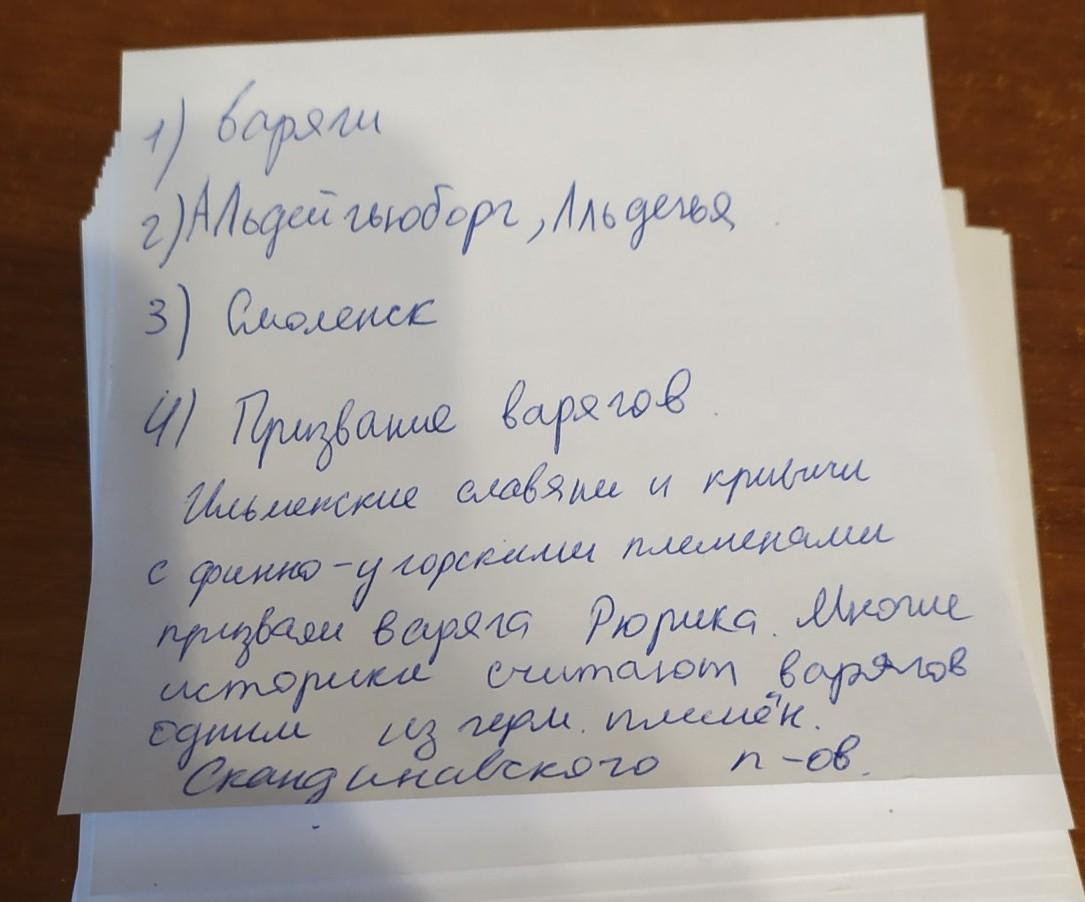 1) варяги
2) Альдейгьюборг, Альдегья
3) Смоленск
4) Призвание варягов.
Ильменские славяне и кривичи
с финно-угорскими племенами
призвали варяга Рюрика. Многие
историки считают варягов
одним из герм. племён.
Скандинавского п-ов.